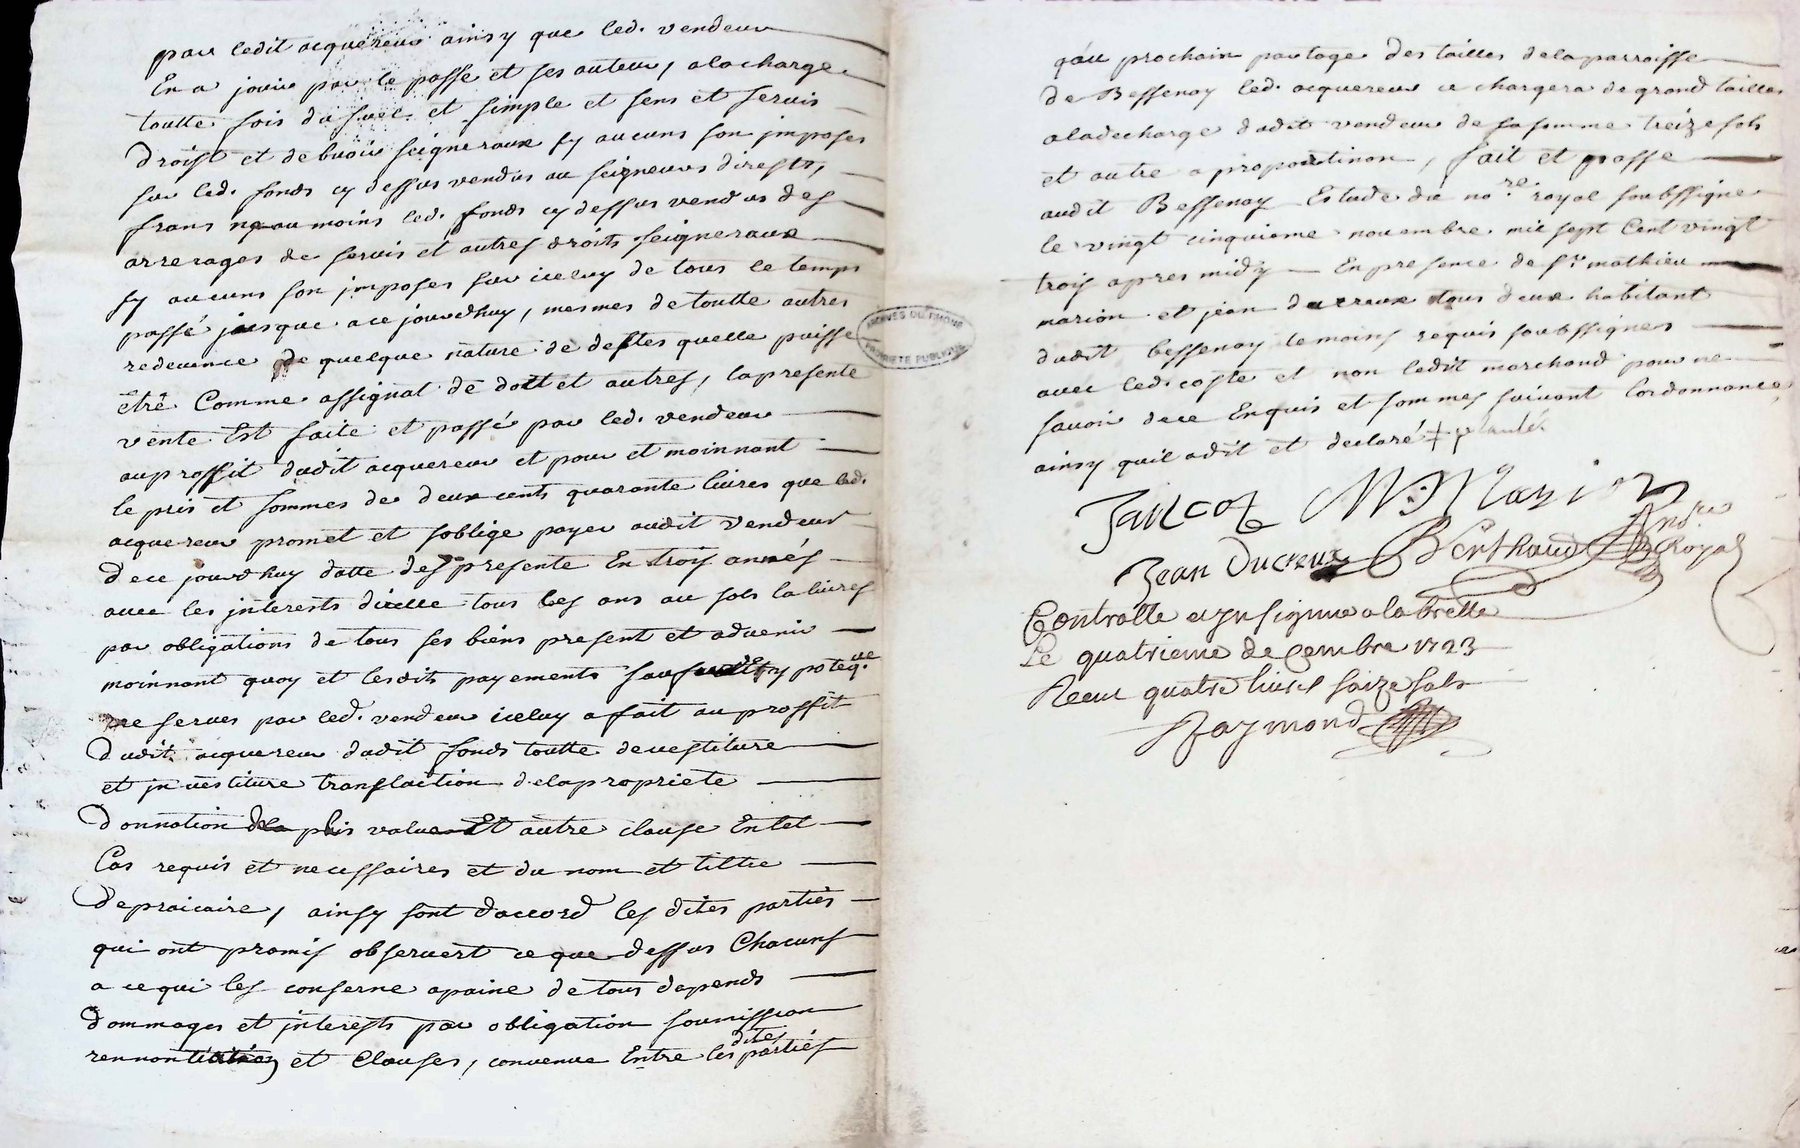 par ledit acquereur ainsy que led. vendeur
En a jouir par le passe et ses auteur, a la charge
toutte fois du et simple et sens et servis
droist et debvoir seigneraux sy aucuns son jmposes
sur led. fonds cy dessus vendus au seigneurs directs,
frans neaumoins led. fonds cy dessus vendus des
arrerages de servis et autres droits seigneraux
sy aucuns son jmposes sur iceluy de tous le temps
passé jusque a ce jourdhuy, mesmes de toutte autres
redevance de quelque nature de destes quelle puisse
être Comme assignat de dott et autres, la presente
vente Est faite et passé par led. vendeur
au proffit dudit acquereur et pour et moinnant
le pris et sommes de deux cents quarante livres que led.
acquereur promet et soblige payer audit vendeur
de ce jourdhuy datte des presente En trois annés
avec les jnterests dicelle tous les ans au sols la livres
par obligations de tous ses biens present et advenir
moinnant quoy et lesdits payements sauf hypoteq.ue
reserves par led. vendeur iceluy a fait au proffit
dudit acquereur dudit fonds toutte devestiture
et jnvestiture translaction de la propriete
donnation dela plus value Et autre clause En tel
Cas requis et necessaires et du nom et tiltre
de praicaire, ainsy sont daccord les dites parties
qui ont promis observert ce que dessus Chacuns
a ce qui les conserne a paine de tous depends
dommages et jnterests par obligation soumission
rennontiation et Clauses, convenue Entre les dites parties
qau prochain partage des tailles de la parroisse
de Bessenay led. acquereur ce chargera de grand tailles
a la decharge dudit vendeur de la somme treize sols
et autre a proportinon, fait et passe
audit Bessenay Estude du no.re royal soubssigne
le vingt cinquieme novembre mil sept Cent vingt
trois apres midy En presence de sr mathieu
marion et jean ducreux tous deux habitant
dudit bessenay temoins requis soubssignes
avec led. coste et non ledit marchand pour ne
savoir de ce Enquis et sommes suivant lordonnance,
ainsy quil a dit et declaré
M Marion
Jean Ducreux Berthaud No.re Royal
Controlle et jnsignue a la brelle
Le quatrieme decembre 1723
Receu quatre livres saize sols
Raymond
ARCHIVES DU RHONE
PROPRIETE PUBLIQUE